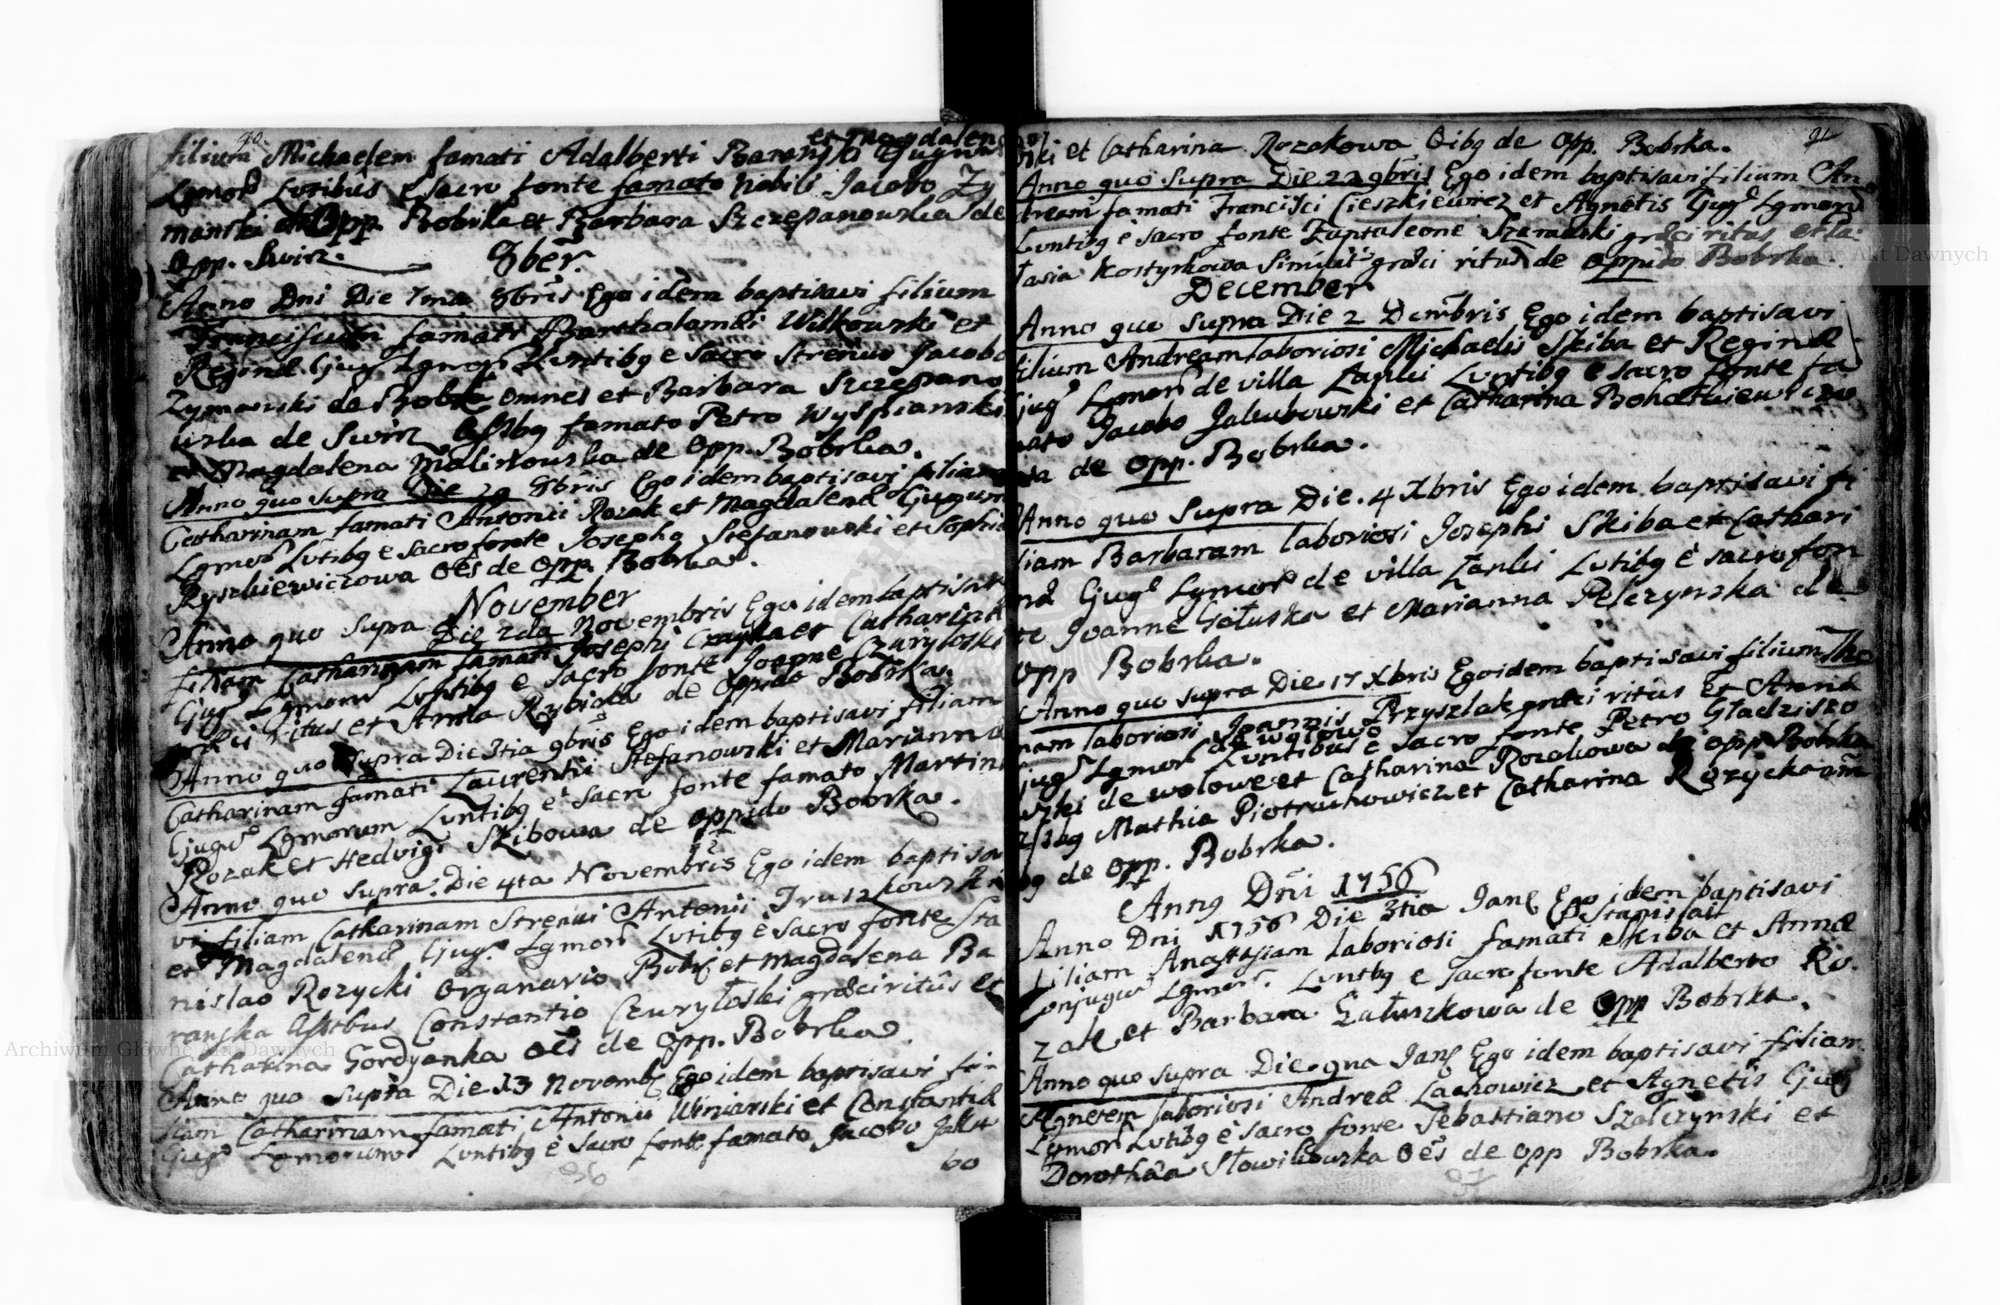 90
et Magdalen
filium Michaelem famati Adalberti Baranski Cjugum
Lgmor Lvtibus e sacro fonte famato Nobili Jacobo Zy
manski de Opp Bobrka et Barbara Szczepanowska de
Opp. Swirz.
8ber.
Anno Dni Die 7ma 8bris Ego idem baptisavi filium
Franciscum famati Bartholomæi Witkowski et
Reginæ Cjug Lgmor Lvntibg e Sacro Strenuo Jacobo
Zymanski de Bobrka omnes et Barbara Szczepano
wska de Swirz Asstbg famato Petro Wyspianski
et Magdalena Malinowska de Opp. Bobrka.
Anno quo supra Die 29 8bris Ego idem baptisavi filiam
Catharinam famati Antonii Rozak et Magdalenæ Cjugum
Lgmor Lvtibg e sacro fonte Josepho Stefanowski et Sophia
Ryszkiewiczowa oes de Opp Bobrka.
November
Anno quo supra Die 2da Novembris Ego idem baptisavi
filiam Catharinam famati Josephi Czayka et Catharinæ
Cjug Lgmor Lvntibg e sacro fonte Joanne Czuryłoski
græci ritus et Anna Rybicka de Oppido Bobrka.
Anno quo supra Die 3tia 9bris Ego idem baptisavi filiam
Catharinam famati Laurentii Stefanowski et Mariannæ
Cjug Lgmorum Lvntibg e sacro fonte famato Martino
Rozak et Hedvigi Skibowa de Oppido Bobrka.
Anno quo supra. Die 4ta Novembris Ego idem baptisa
vi filiam Catharinam Strenui Antonii Truszkowski
et Magdalenæ Cjug Lgmor Lvtibg e sacro fonte Sta
nislao Rozycki Organario Bobr et Magdalena Ba
ranska Asstbus Constantio Czuryłoski græci ritus et
Catharina Gordyanka oes de Opp. Bobrka.
Anno quo supra Die 13 Novemb Ego idem baptisavi fi-
liam Catharinam famati Antonii Winiarski et Constantiæ
Cjug Lgmorum Lvntibg e sacro fonte famato Jacobo Jaku
bo
96
91
wski et Catharina Rozakowa Oibg de Opp. Bobrka.
Anno quo supra Die 22 9bris Ego idem baptisavi filium An
dream famati Francisci Cieszkiewicz et Agnetis Cjug Lgmor
Lvntibg e sacro fonte Pantaleone Szaranski græci ritus et Na
tasia Kostyrkowa Simili græci ritus de Oppido Bobrka.
December
Anno quo supra Die 2 Dcmbris Ego idem baptisavi
filium Andream laboriosi Michaelis Skiba et Reginæ
Cjug Lgmor de villa Łanki Lvntibg e sacro fonte fa
mato Jacobo Jakubowski et Catharina Bohatkiewiczo
wa de Opp. Bobrka.
Anno quo supra Die. 4 Xbris Ego idem baptisavi fi
liam Barbaram laboriosi Josephi Skiba et Cathari
næ Cjug Lgmor de villa Łanki Lvtibg e sacro fon
te Joanne Gałuska et Marianna Pelczynska de
Opp Bobrka.
Anno quo supra Die 17 Xbris Ego idem baptisavi filium Tho
mam laboriosi Joannis Przyszlak græci ritus et Anna
de Wołowe
Cjug Lgmor Lvntibus e sacro fonte Petro Gładzisze
wski de Wołowe et Catharina Rozakowa de Opp Bobrka
Asstbg Mathia Piotruchowicz et Catharina Rozycka om
bg de Opp. Bobrka.
Anno Dni 1756
Anno Dni 1756 Die 3tia Jan Ego idem baptisavi
filiam Anastasiam laboriosi famati Stanislai Skiba et Annæ
Conjugum Lgmor. Lvntbg e sacro fonte Adalberto Ro
zak et Barbara Gałuszkowa de Opp Bobrka.
Anno quo supra Die 9na Jan Ego idem baptisavi filiam
Agnetem laboriosi Andreæ Lachowicz et Agnetis Cjug
Lgmor Lvtibg e sacro fonte Sebastiano Szalczynski et
Dorothæa Słowikowska Oes de Opp Bobrka.
97
Archiwum Główne Akt Dawnych
Archiwum Główne Akt Dawnych